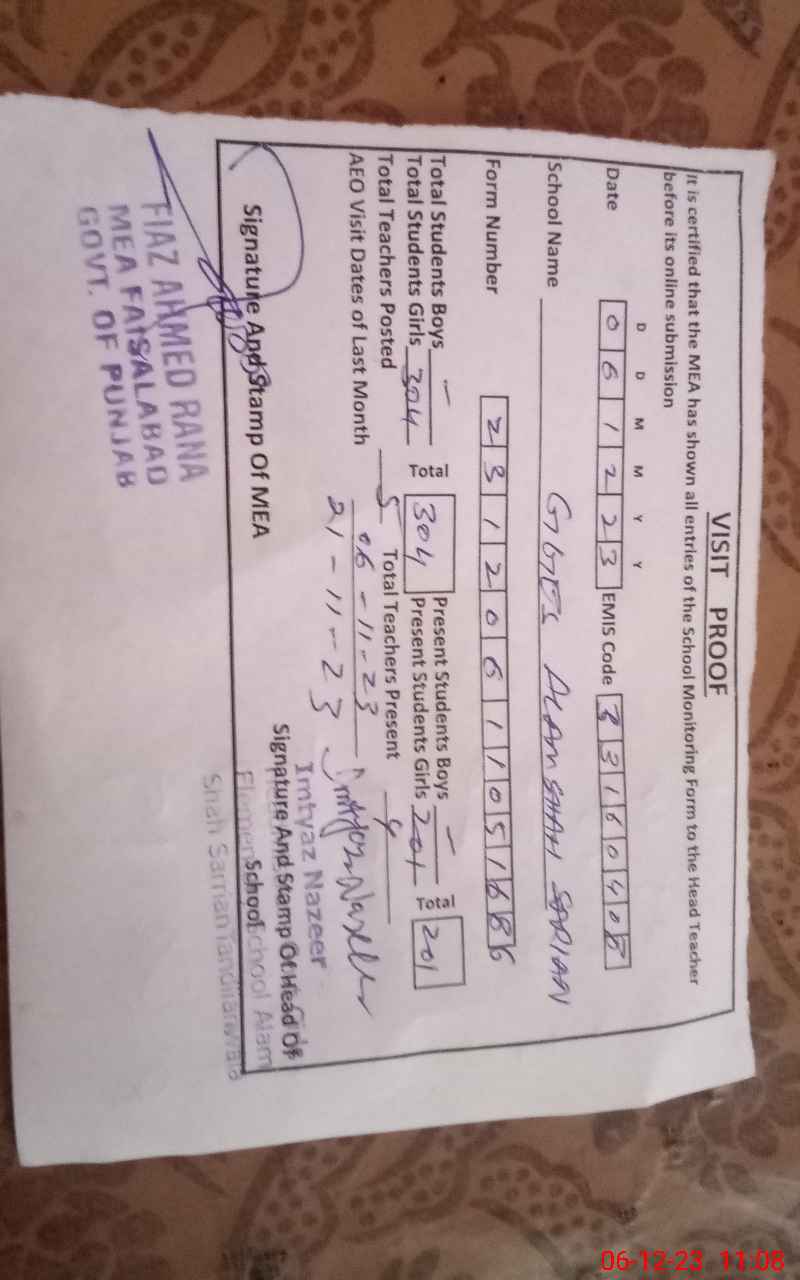 VISIT PROOF
It is certified that the MEA has shown all entries of the School Monitoring Form to the Head Teacher
before its online submission
D D M M Y Y
Date 0 6 1 2 2 3 EMIS Code 3 3 1 6 0 4 0 8
School Name GGES ALAM SHAH
Form Number 2 3 1 2 0 6 1 1 0 5 1 6 8 6
Total Students Boys - Present Students Boys -
Total Students Girls 304 Total 304 Present Students Girls 201 Total 201
Total Teachers Posted 5 Total Teachers Present 4
AEO Visit Dates of Last Month 06-11-23
21-11-23
Imtyaz Nazeer
Signature And Stamp Of MEA Signature And Stamp Of Head Of
School
School Alam
Shah
FIAZ AHMED RANA
MEA FAISALABAD
GOVT. OF PUNJAB
06-12-23 11:08